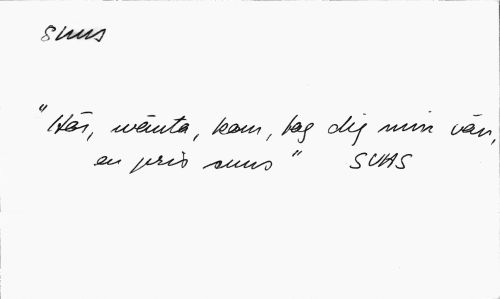 snus
"Hör, vänta, kom, tag dig min vän,
en pris snus" SVHS